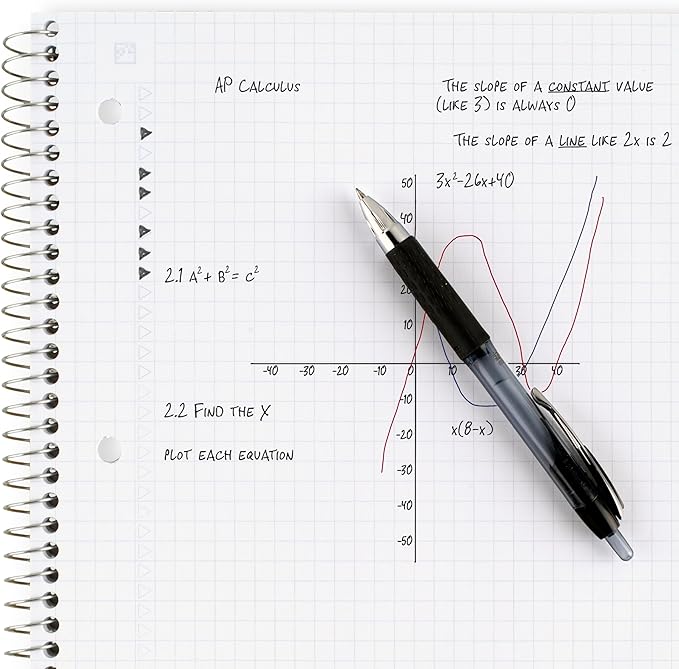 AP CALCULUS
THE SLOPE OF A CONSTANT VALUE
(LIKE 3) IS ALWAYS 0
THE SLOPE OF A LINE LIKE 2X IS 2
3x²-26x+40
50
40
20
10
2.1 A² + B² = C²
-40 -30 -20 -10 0 10 30 40
-10
2.2 FIND THE X
x(8-x)
-20
PLOT EACH EQUATION
-30
-40
-50